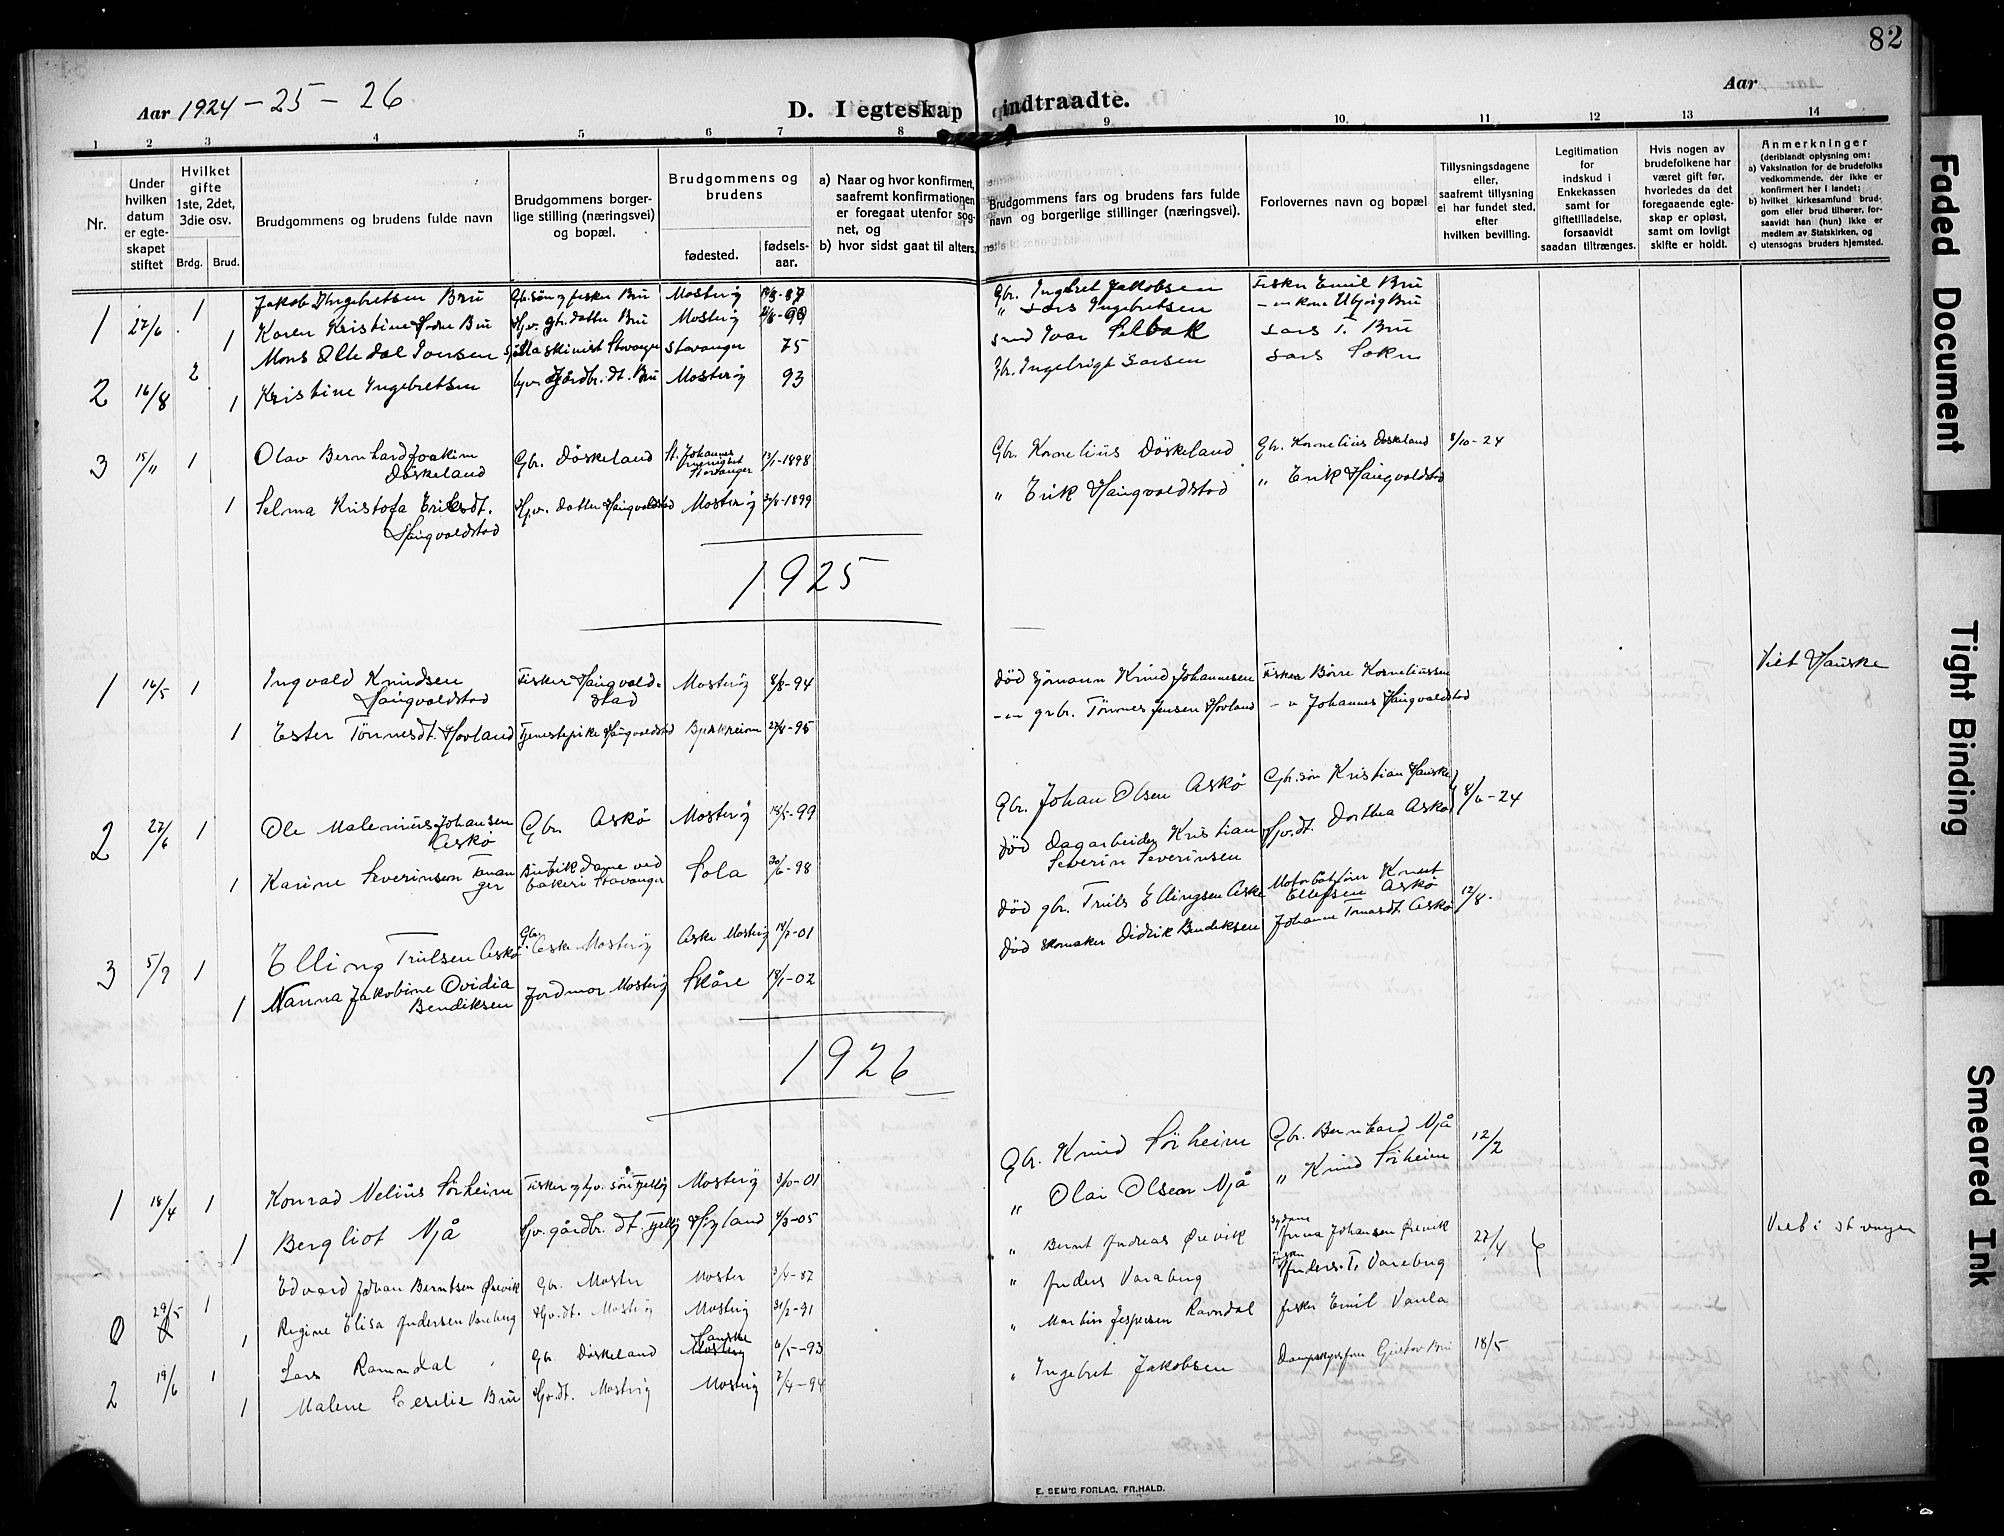 82
Aar 1924 - 25 - 26
D. I egteskap indtraadte.
Aar
1 2 3 4 5 6 7 8 9 10. 11 12 13 14
Nr.
Under hvilken datum er egteskapet stiftet
Hvilket gifte 1ste, 2det, 3die osv.
Brdg. Brud.
Brudgommens og brudens fulde navn
Brudgommens borgerlige stilling (næringsvei) og bopæl.
Brudgommens og brudens
fødested.
fødselsaar.
a) Naar og hvor konfirmert, saafremt konfirmationen er foregaat utenfor sognet, og
b) hvor sidst gaat til alters.
Brudgommens fars og brudens fars fulde navn og borgerlige stillinger (næringsvei).
Forlovernes navn og bopæl
Tillysningsdagene eller, saafremt tillysning ei har fundet sted, efter hvilken bevilling.
Legitimation for indskud i Enkekassen samt for giftetilladelse, forsaavidt saadan tiltrænges.
Hvis nogen av brudefolkene har været gift før, hvorledes da det foregaaende egteskap er opløst, samt om lovligt skifte er holdt.
Anmerkninger
(deriblandt oplysning om:
a) Vaksination for de brudefolks vedkommende, der ikke er konfirmert her i landet;
b) hvilket kirkesamfund brudgom eller brud tilhører, forsaavidt han (hun) ikke er medlem av Statskirken, og
c) utensogns bruders hjemsted.
1 27/6 1 Jakob Ingebretsen Bru Gbr. søn og fisker Bru Mosterøy 87 Gbr. Ingebret Jakobsen Fisker Emil Bru
1 Karen Kristine Bru Hjv. gbr. datter Bru Mosterøy " Lars Ingebretsen Bru
2 Mons Olledal Ivarsen Maskinist Stavanger Stavanger 75 smed Ivar Selbak Lars T. Bru
2 16/8 1 Kristine Ingebretsen hjv. Gårdbr. dt. Bru Mosterøy 93 Gbr. Ingebrigt Larsen Lars Sokn
3 15/11 1 Olav Bernhard Joakim Døskeland Gbr. Døskeland St. Johannes menighet Stavanger 13/1-1898 Gbr. Kornelius Døskeland Gbr. Kornelius Døskeland 8/10-24
1 Selma Kristofa Eriksdt. Haugvaldstad Hjv. datter Haugvaldstad Mosterøy 1899 " Erik Haugvaldstad " Erik Haugvaldstad
1925
1 16/5 1 Ingvald Knudsen Haugvaldstad Fisker Haugvaldstad Mosterøy 4/8-94 død sjømann Knud Johannesen Fisker Børre Korneliussen Viet Hauske
1 Ester Tønnesdt. Hovland Tjenestepike Haugvaldstad Bjerkreim 27/8-95 -"- gbr. Tønnes Jensen Hovland -"- Johannes Haugvaldstad
2 27/6 1 Ole Malenius Johansen Askø Gbr. Askø Mosterøy 18/5-99 Gbr. Johan Olsen Askø Gbr. søn Kristian Hauske 8/6-24
1 Karine Severinsen Tananger Butikdame ved bakeri Stavanger Sola 30/6-98 død Dagarbeider Kristian Severin Severinsen Hjv. dt. Dorthea Askø
3 5/7 1 Elling Trulsen Askø Gbr. Aske Mosterøy Aske Mosterøy 14/2-01 død gbr. Truls Ellingsen Aske Motorbåtfører Knut Ellefsen Askø 12/8.
1 Nanna Jakobine Ovidia Bendiksen Jordmor Mosterøy Skåre 18/1-02 død skomaker Didrik Bendiksen Johanne Tomasdt. Askø
1926
1 18/4 1 Konrad Nelius Sørheim Fisker og hjv. søn Fjeløy Mosterøy 3/10-01 Gbr. Knud Sørheim Gbr. Bernhard Njå 12/2
1 Bergliot Njå Hjv. gårdbr. dt. Fjeløy Høyland 4/3-05 " Olai Olsen Njå " Knud Sørheim
0 29/5 1 Edvard Johan Berntsen Ørevik Gbr. Moster Moster 3/4-87 " Bernt Andreas Ørevik Anna Johansen Ørevik 27/4 Vieb i Stvanger
1 Regine Elisa Andersen Vareberg Hjv. dt. Mosterøy Mosterøy 31/2-91 " Anders Vareberg Anders T. Vareberg
2 19/6 1 Lars Ramndal Gbr. Døskeland Hauske 6/5-93 " Martin Jespersen Ravndal fisker Emil Vaula
1 Malene Cecelie Bru Hjv. dt. Mosterøy Mosterøy 7/4-94 " Ingebret Jakobsen Dampskipsfører Gustav Bru 18/5
E. SEM'S FORLAG, FR.HALD.
Faded Document
Tight Binding
Smeared Ink